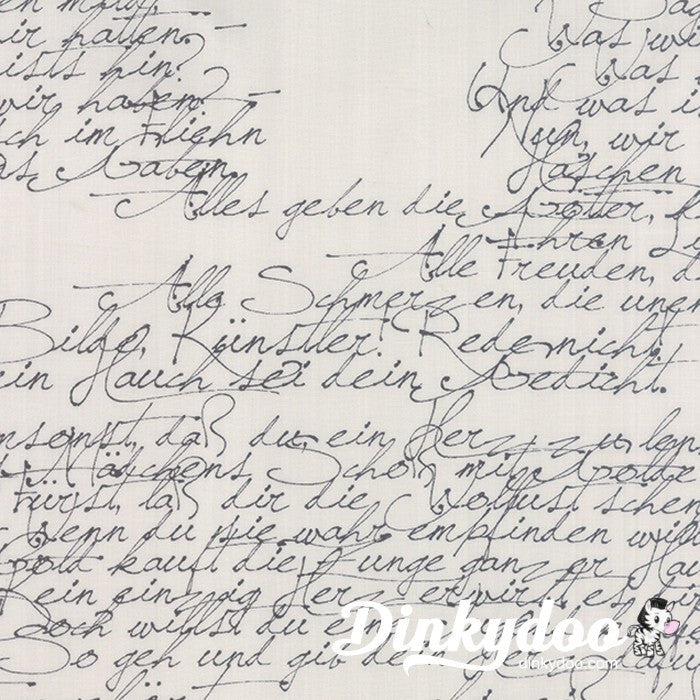 ir hatten. –
Was wi
ists hin?
Was
wir haben? –
Und was i
ch im Fliehn
Nun, wir
as Haben.
Haschen
Alles geben die Götter,
Ihren
Alle Freuden, d
Alle Schmerzen, die une
Bilde, Künstler! Rede nicht!
ein Hauch sei dein Gedicht.
msonst, daß du, ein Herz zu len
Mädchens Schoß mit Golde
Fürst, laß dir die Wollust schen
Wenn du sie wahr empfinden will
Gold kauft die Zunge ganzer Hau
Kein einzig Herz erwirbt es di
Doch willst du
So geh und gib
Dinkydoo
dinkydoo.com